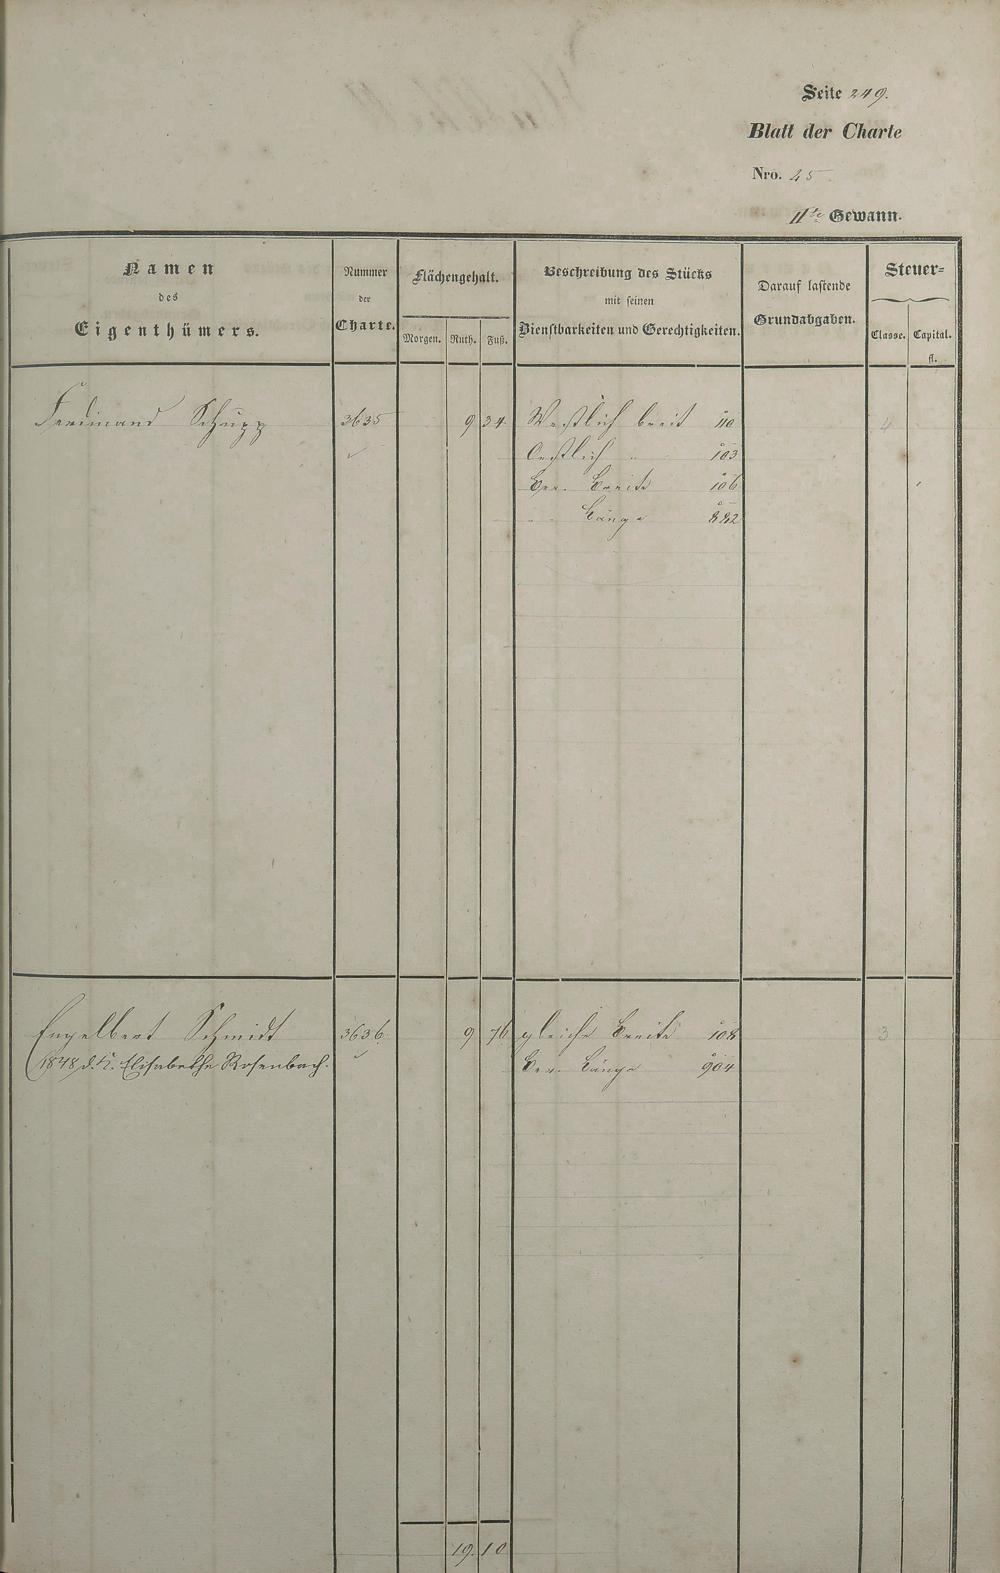 Seite 249.
Blatt der Charte
Nro. 45
IIte Gewann.
Namen
des
Eigenthümers.
Nummer
der
Charte.
Flächengehalt.
Morgen. Ruth. Fuß.
Beschreibung des Stücks
mit seinen
Dienstbarkeiten und Gerechtigkeiten.
Darauf lastende
Grundabgaben.
Steuer-
Classe. Capital.
fl.
Ferdinand Schupp 3635 9 34 Westlich breit 110 4
Oestlich " 103
Ber. Breite 106
" Länge 882
Engelbert Schmidt 3636 9 76 gleiche Breite 108 3
(1848 d. K. Elisabethe Rosenbach. Ber. Länge 904
19. 10